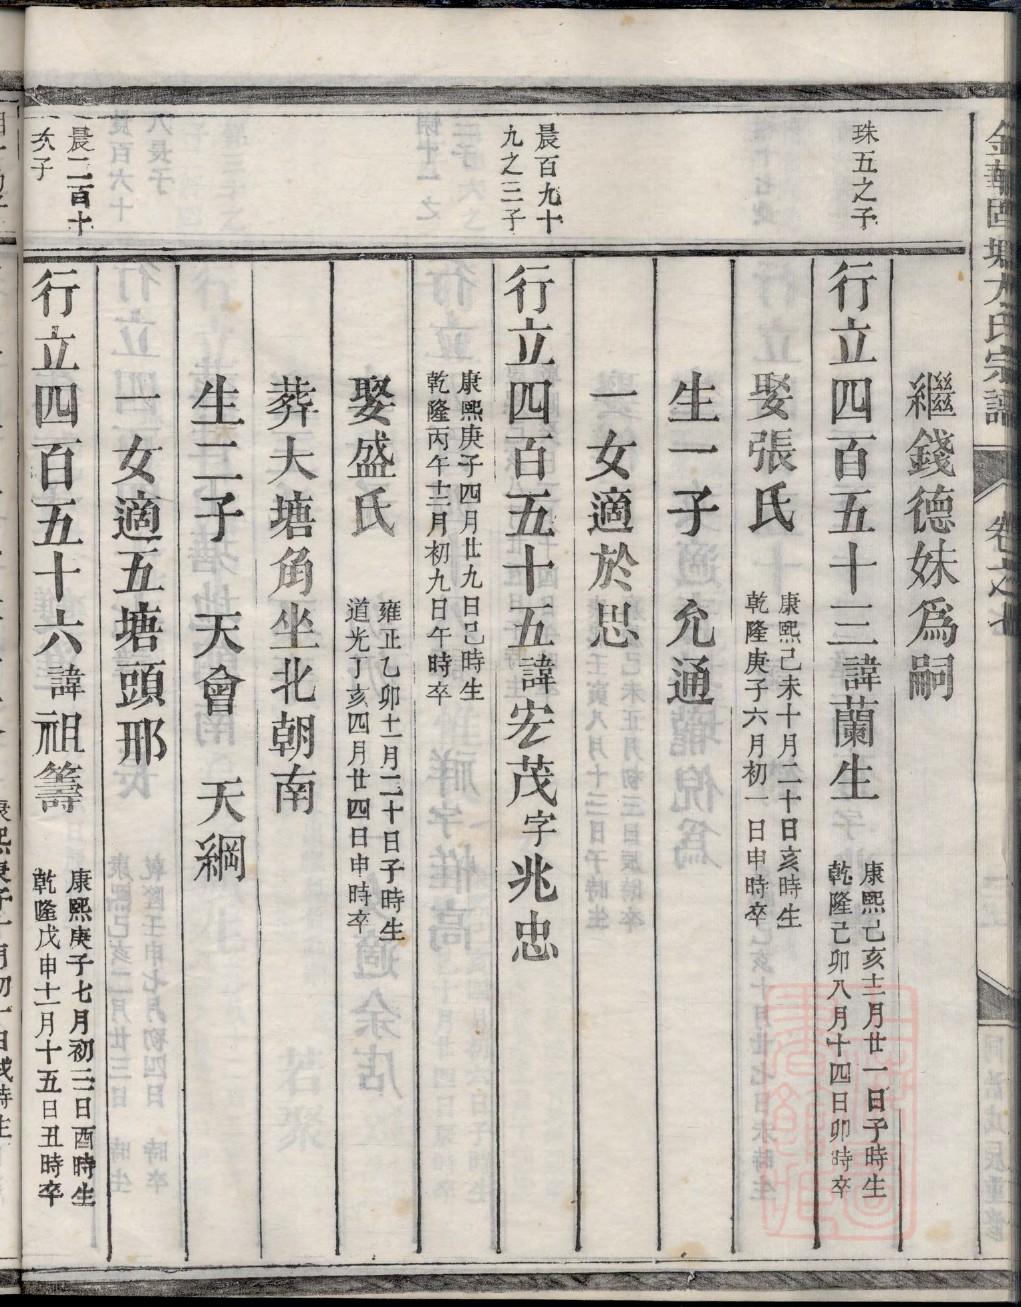 金華固塘方氏宗譜
卷之七
繼錢德妹爲嗣
珠五之子
行立四百五十三諱蘭生
康熙己亥十二月廿一日子時生
乾隆己卯八月十四日卯時卒
娶張氏
康熙己未十月二十日亥時生
乾隆庚子六月初一日申時卒
生一子 允通
一女適於思
晨百九十
九之三子
行立四百五十五諱宏茂字兆忠
康熙庚子四月廿九日巳時生
乾隆丙午十二月初九日午時卒
娶盛氏
雍正乙卯十一月二十日子時生
道光丁亥四月廿四日申時卒
葬大塘角坐北朝南
生二子 天會 天綱
一女適五塘頭邢
晨二百十
次子
行立四百五十六諱祖籌
康熙庚子七月初二日酉時生
乾隆戊申十一月十五日丑時卒